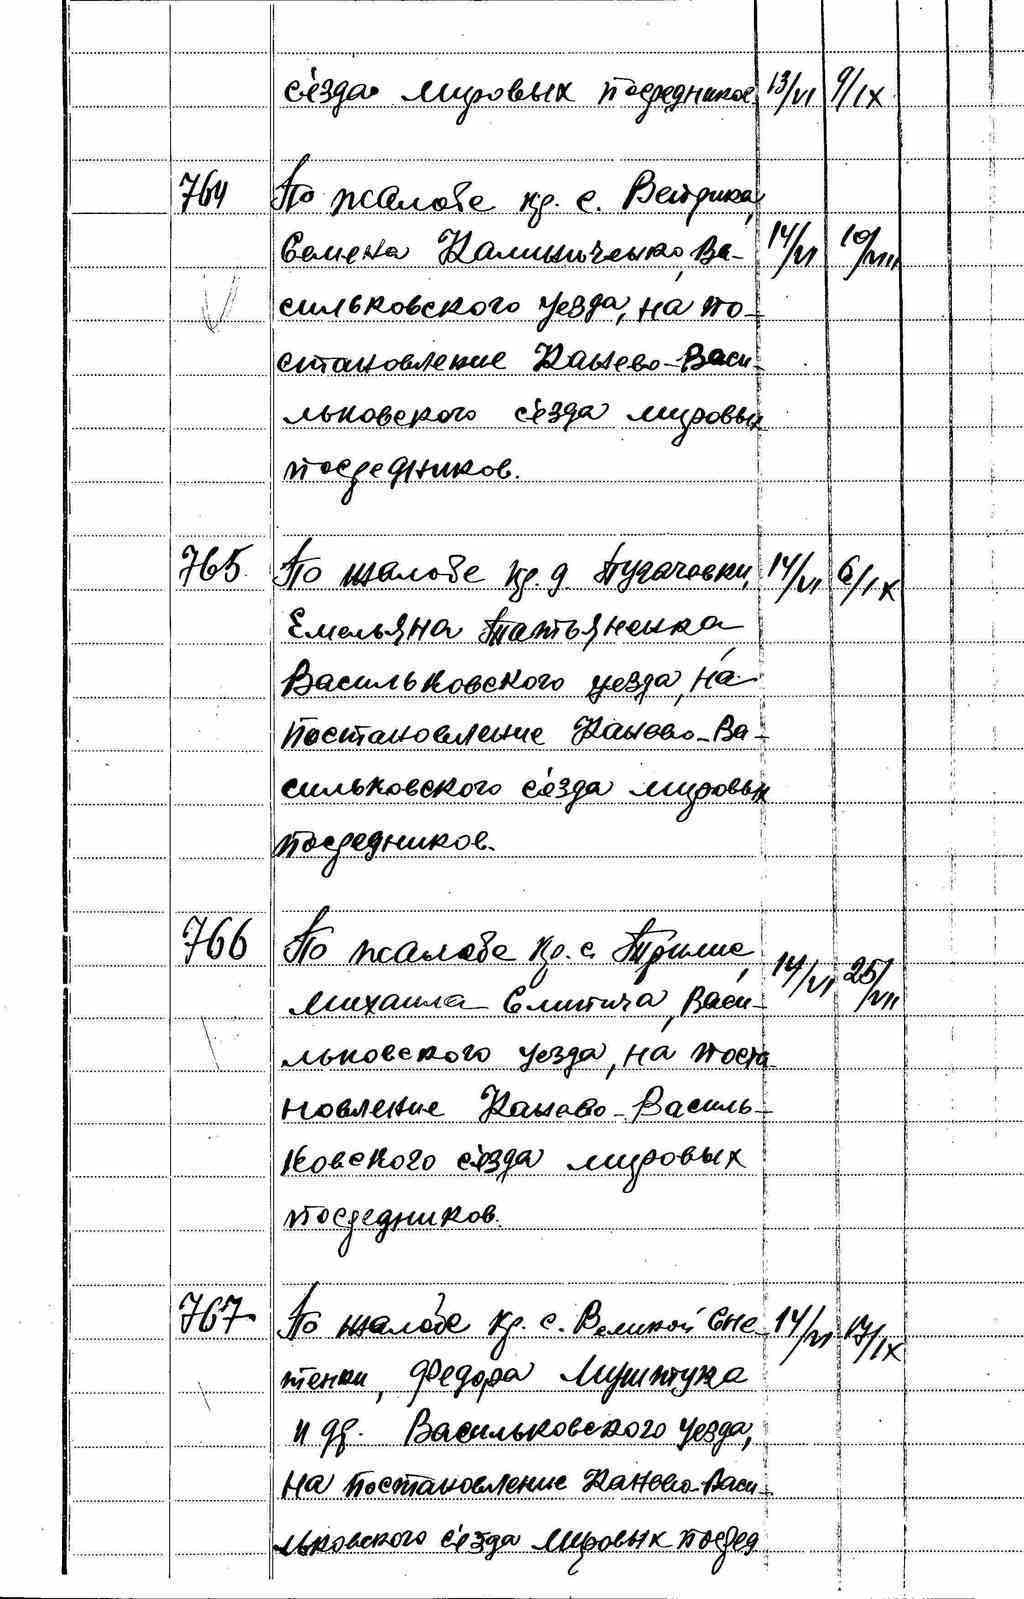 с'езда мировых посредников 13/VI 9/IX
764 По жалобе кр. с. Ветрика,
Семена Калиниченко, Ва- 14/VI 10/VIII
сильковского уезда, на по-
становление Канево-Васи-
льковского с'езда мировых
посредников.
765 По жалобе кр. д. Пугачовки, 14/VI 6/IX
Емельяна Татьяненка,
Васильковского уезда, на
постановление Канево-Ва-
сильковского с'езда мировых
посредников.
766 По жалобе кр. с. Трилис, 14/VI 25/VII
Михаила Слипича, Васи-
льковского уезда, на поста-
новление Канево-Василь-
ковского с'езда мировых
посредников.
767 По жалобе кр. с. Великой Сне- 14/VI 17/IX
тенки, Федора Муштука
и др. Васильковского уезда,
на постановление Канево-Васи-
льковского с'езда мировых посред